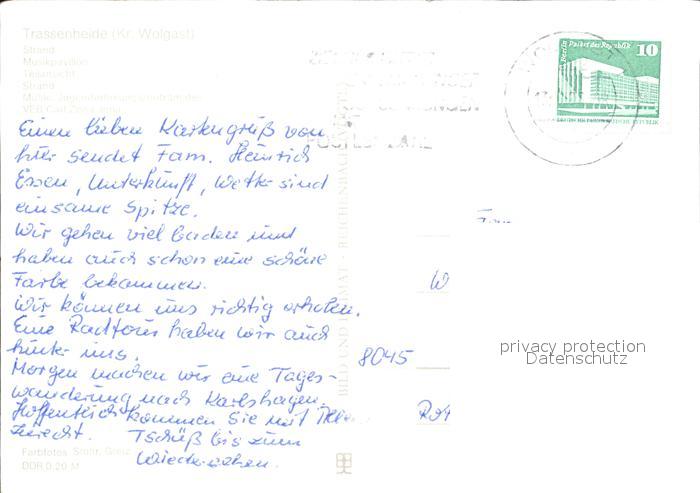 Trassenheide (Kr. Wolgast)
Strand
Musikpavillon
Teilansicht
Strand
VEB Carl Zeiss Jena
Einen lieben Kartengruß von
hier sendet Fam. Heinrich
Essen, Unterkunft, Wetter sind
einsame Spitze.
Wir gehen viel baden und
haben auch schon eine schöne
Farbe bekommen.
Wir können uns richtig erholen.
Eine Radtour haben wir auch
hinter uns.
Morgen machen wir eine Tages-
wanderung nach Karlshagen.
Hoffentlich kommen Sie mit
zurecht. Tschüß bis zum
Wiedersehen.
Farbfotos: Stöhr, Greiz
DDR 0,20 M
BILD UND HEIMAT · REICHENBACH
Berlin Palast der Republik 10
8045
W
privacy protection
Datenschutz